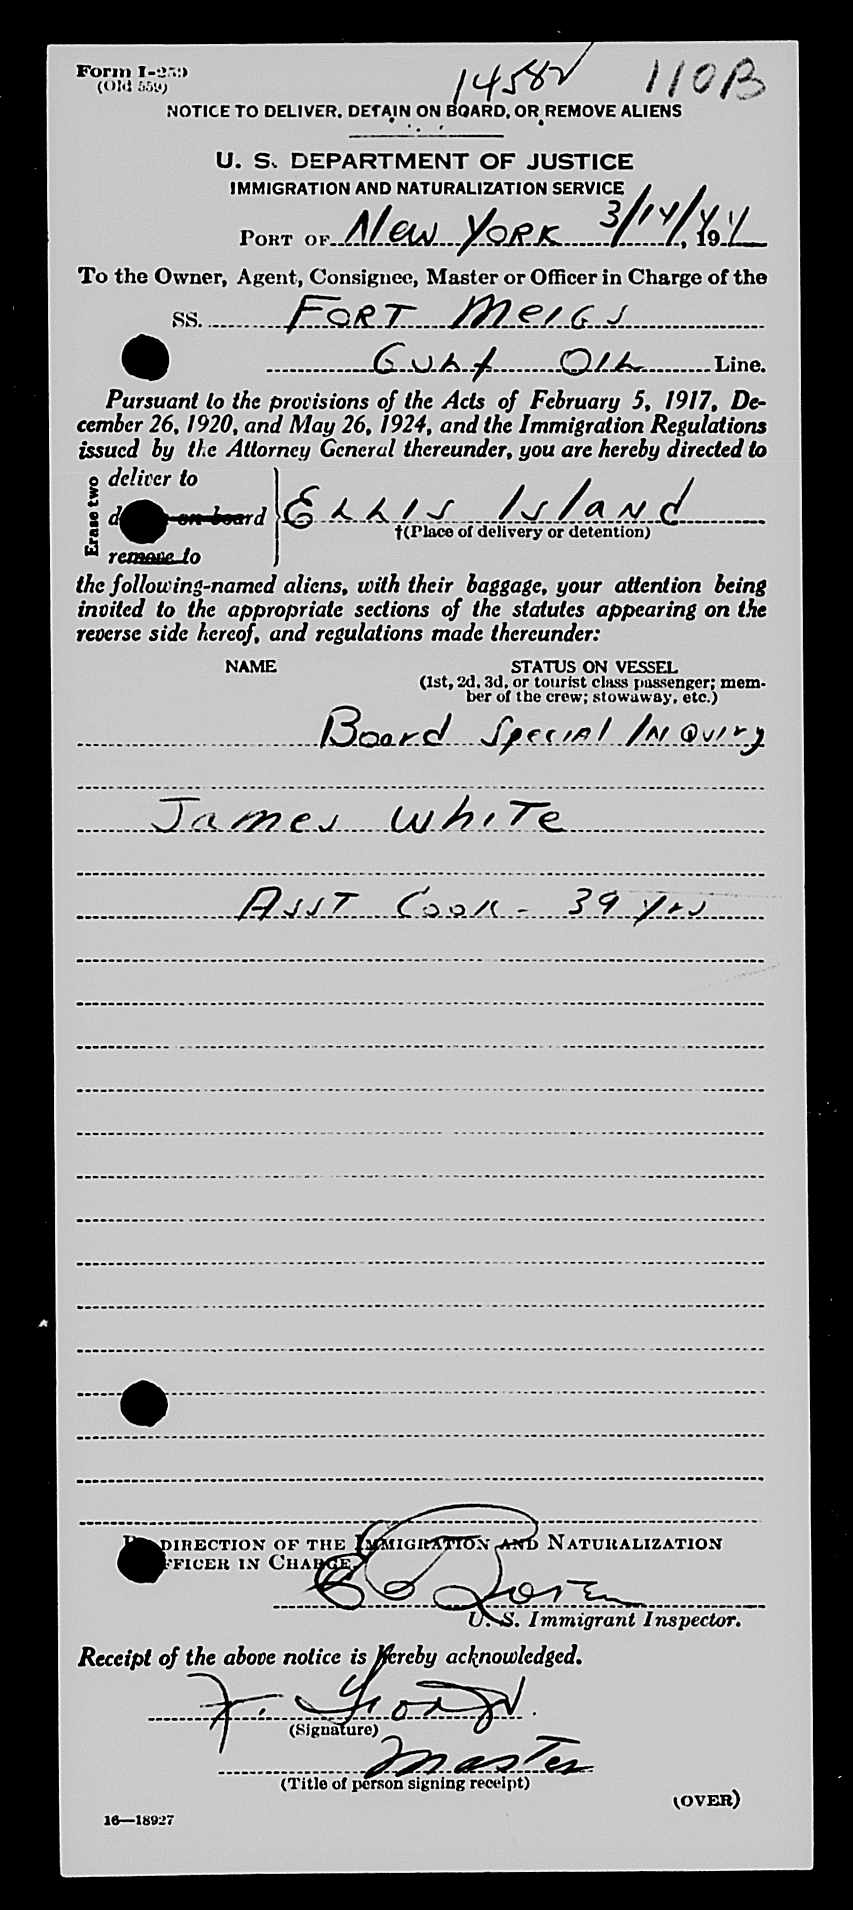 Form I-259
(Old 559)
1458
110B
NOTICE TO DELIVER, DETAIN ON BOARD, OR REMOVE ALIENS
U. S. DEPARTMENT OF JUSTICE
IMMIGRATION AND NATURALIZATION SERVICE
PORT OF New York 3/14/44, 194
To the Owner, Agent, Consignee, Master or Officer in Charge of the
SS. FORT MeIGS
GULF OIL Line.
Pursuant to the provisions of the Acts of February 5, 1917, De-
cember 26, 1920, and May 26, 1924, and the Immigration Regulations
issued by the Attorney General thereunder, you are hereby directed to
Erase two
deliver to
d on board
remove to
ELLIS Island
†(Place of delivery or detention)
the following-named aliens, with their baggage, your attention being
invited to the appropriate sections of the statutes appearing on the
reverse side hereof, and regulations made thereunder:
NAME STATUS ON VESSEL
(1st, 2d, 3d, or tourist class passenger; mem-
ber of the crew; stowaway, etc.)
Board Special Inquiry
James White
Asst Cook - 39 yrs
DIRECTION OF THE IMMIGRATION AND NATURALIZATION
FFICER IN CHARGE.
U. S. Immigrant Inspector.
Receipt of the above notice is hereby acknowledged.
(Signature)
Master
(Title of person signing receipt)
(OVER)
16—18927